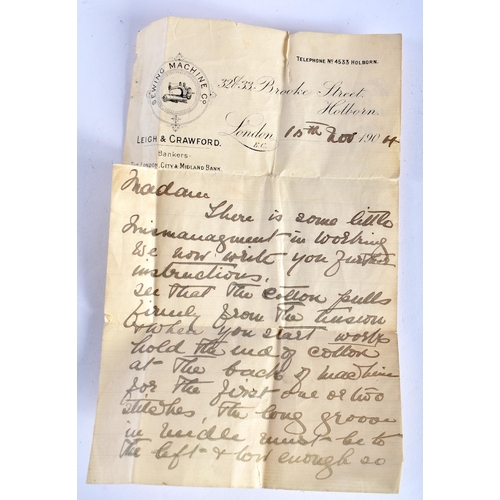 TELEPHONE Nº 4533 HOLBORN.
SEWING MACHINE Cº
32 & 33, Brooke Street,
Holborn.
LEIGH & CRAWFORD.
London 15th Nov 1904
E.C.
Bankers-
THE LONDON, CITY & MIDLAND BANK.
Madam
There is some little
mismanagment in working
We now write you further
instructions.
see that the cotton pulls
firmly from the tension
& when you start work
hold the end of cotton
at the back of machine
for the first one or two
stitches, the long groove
in needle must be to
the left & low enough so